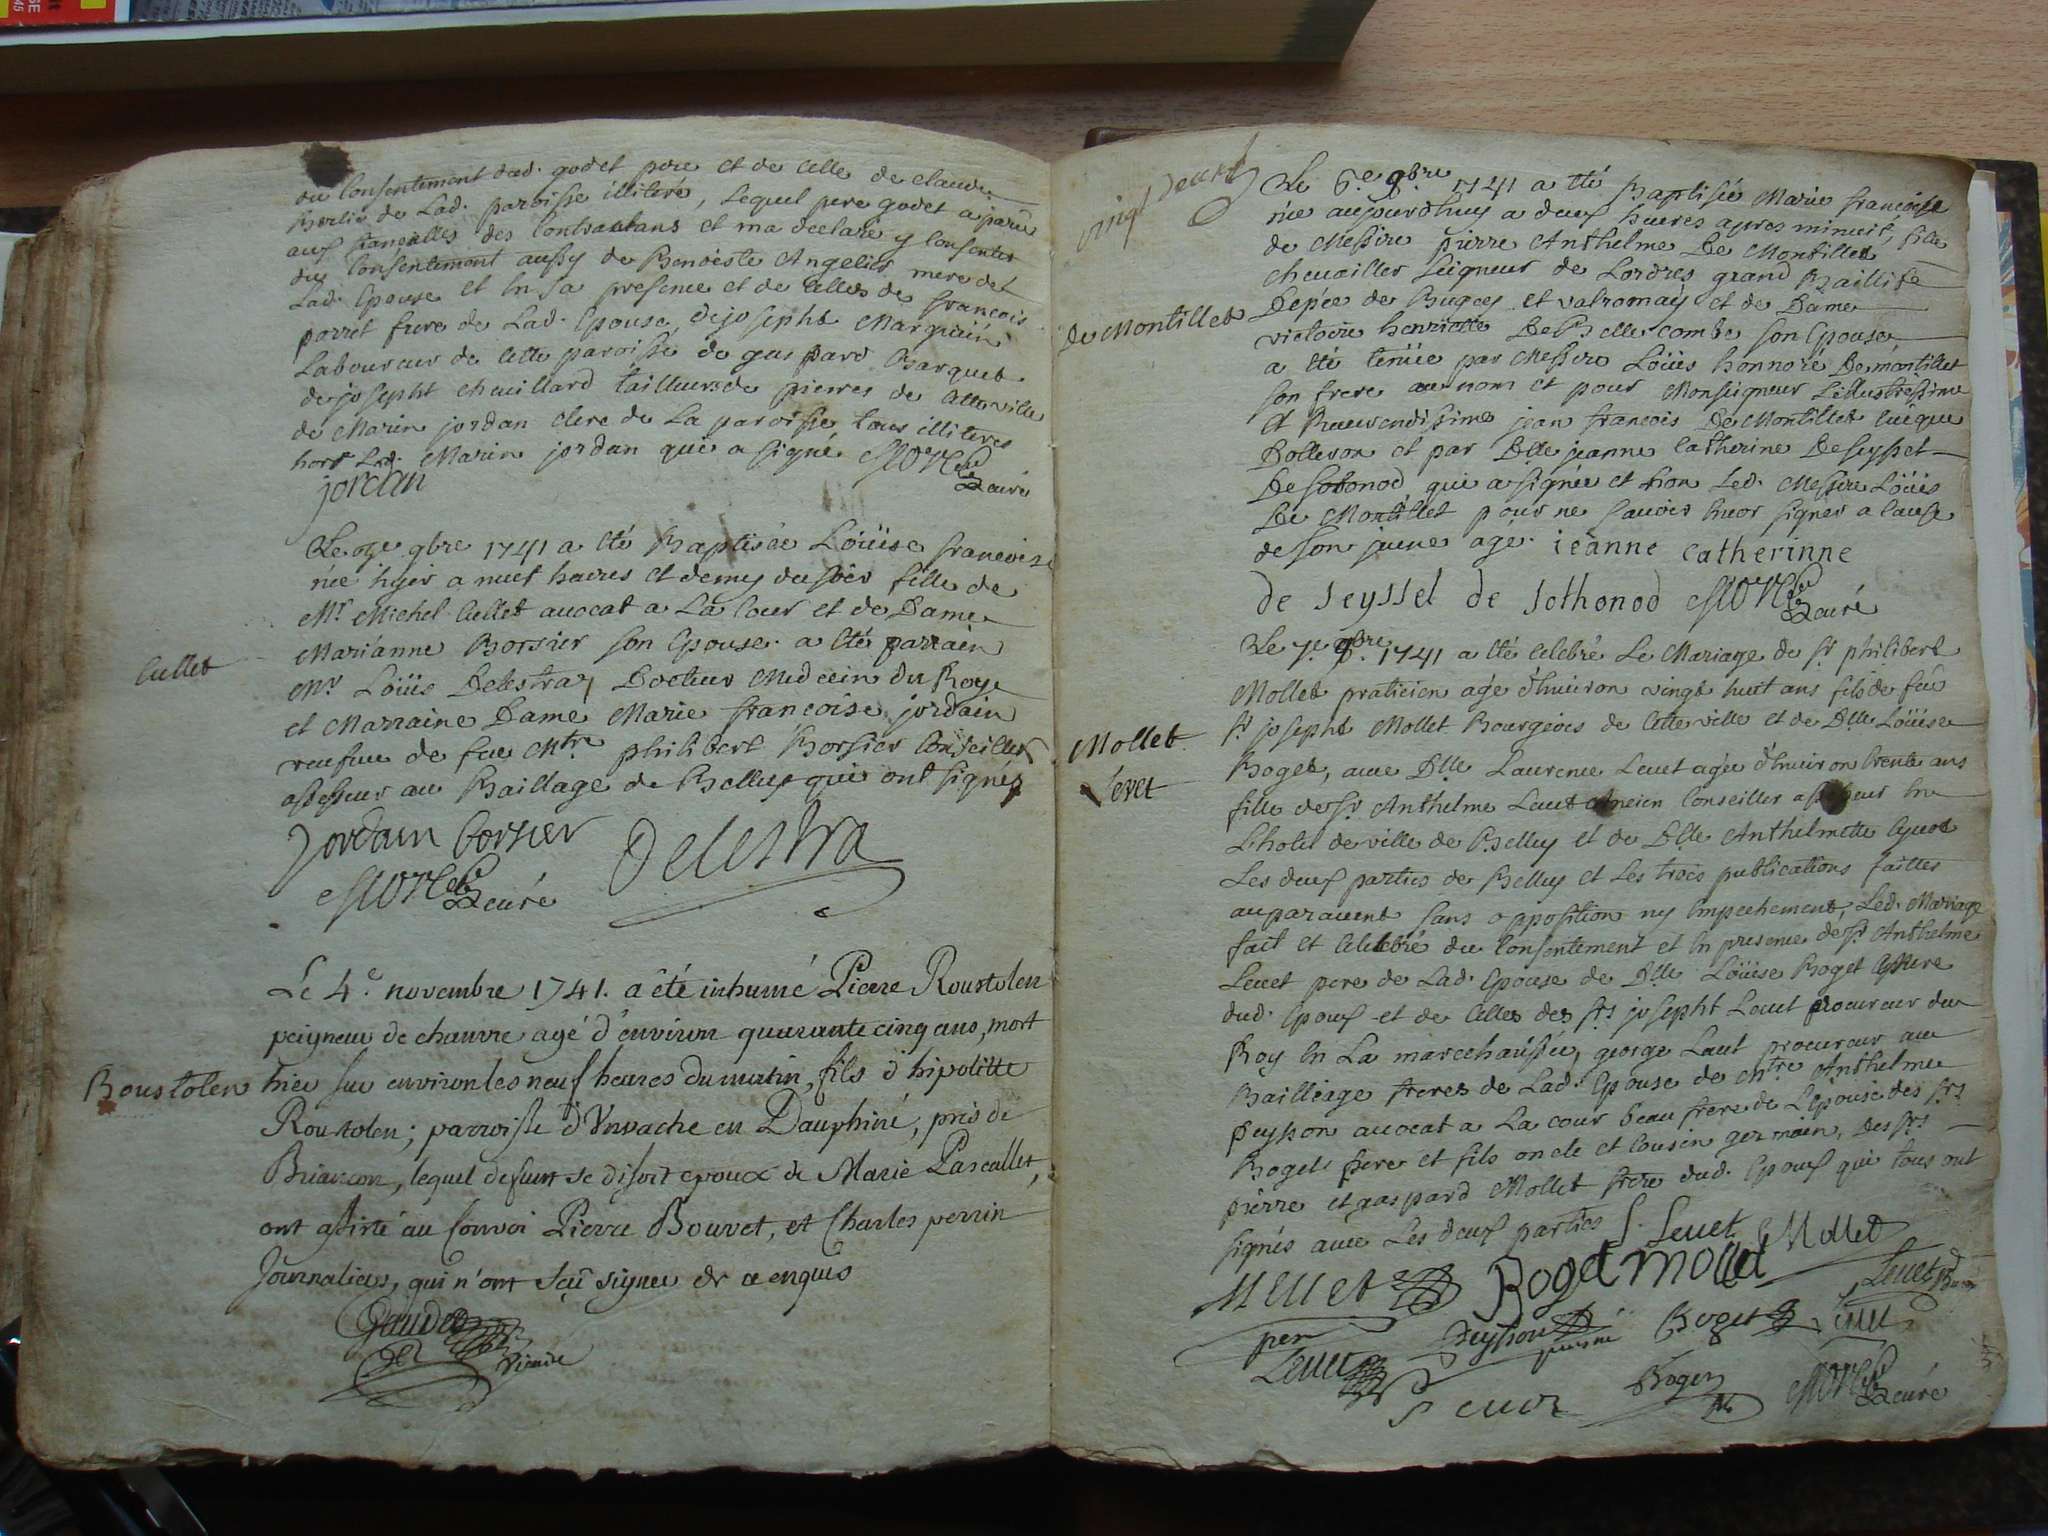 du consentement dud. godet pere et de celle de claudine
Berlié de Lad. paroisse illiteré, Lequel pere godet a parû
aux fiançailles des Contractans et ma declaré y consentir
du Consentement aussy de Benoiste Angelier mere de
Lad. Epouse et En sa presence et de celles de francois
porret frere de Lad. Epouse, de josepht Marguin
Laboureur de cette paroisse de gaspard Barquet
de josepht chevillard tailleurs de pierres de cette ville
de Marin jordan clerc de La paroisse tous illiteres
hors Led. Marin jordan qui a signé
jordan curé
Le 9bre 1741 a eté Baptisée Loüise francoise
née hyer a huit heures et demy du soir fille de
Mr Michel Cullet avocat a La Cour et de Dame
Marianne Borsier son Epouse. a eté parrain
Mr Loüis Delestra, Docteur Medecin du Roy
et Marraine Dame Marie francoise jordain
veufve de feu Mtre philibert Borsier Conseiller
assesseur au Baillage de Belley qui ont signés
Cullet
Jordain borsier Delestra
curé
Le 4e novembre 1741. a été inhumé Pierre Roustolen
peigneur de chanvre agé d'environ quarante cinq ans, mort
Roustolen
hier sur environ les neuf heures du matin, fils d'hipolitte
Roustolen; parroisse d'Vnvache en Dauphiné, près de
Briançon, lequel defunt se disoit epoux de Marie Pascallet,
ont assisté au Convoi Pierre Bouvet, et Charles perrin
Journaliers, qui n'ont sçû signer de ce enquis
vicaire
vingt deux
Le 6e 9bre 1741 a eté Baptisée Marie francoise
née aujourdhuy a deux heures apres minuit, fille
de Messire pierre Anthelme De Montillet
chevailler seigneur de Lordres grand Baillife
De Montillet
Depée de Bugey et valromay et de Dame
victoire henriette De Bellecombe son Epouse,
a eté tenüe par Messire Loüis honnoré De montillet
son frere au nom et pour Monseigneur Lillustrissime
Et Reverendissime jean francois De Montillet Eueque
Dolleron et par Dlle jeanne Catherine De seysset
De sotonod qui a signée et non Led. Messire Loüis
De Montillet pour ne savoir Encor signer a cause
de son jeune age. ieanne catherinne
de seyssel de sothonod curé
Le 7e 9bre 1741 a eté celebré Le Mariage de sr philibert
Mollet praticien agé d'huiron vingt huit ans fils de feu
sr josepht Mollet Bourgeois de cette ville et de Dlle Loüise
Mollet
Levet
Roget, avec Dlle Laurence Levet agée d'huiron trente ans
fille de sr Anthelme Levet Ancien Conseiller assesseur En
Lhotel de ville de Belley et de Dlle Anthelmette
Les deux parties de Belley et Les trois publications faittes
auparavent sans opposition ny Empechement, Led. Mariage
fait et celebré du Consentement et En presence de sr Anthelme
Levet pere de Lad. Epouse de Dlle Loüise Roget mere
dud. Epoux et de celles des srs josepht Levet procureur du
Roy En La marechaussée, george Levet procureur au
Bailliage freres de Lad. Epouse de Mtre Anthelme
Peysson avocat a La cour beau frere de L'epouse des srs
Rogets pere et fils oncle et Cousin germain, Des srs
pierre et gaspard Mollet frere dud. Epoux qui tous ont
signés avec Les deux parties S. Levet Mollet
Mollet Roget Mollet Levet
Peysson Roget
Levet
Roget curé